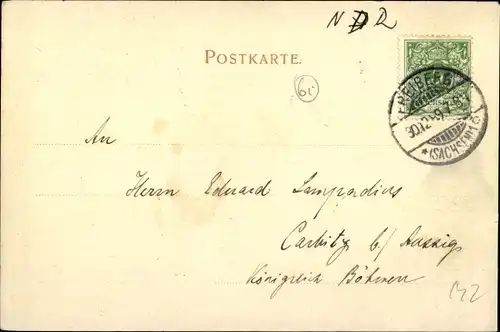 N D R
POSTKARTE.
61
FREIBERG
30.12.
*(SACHSEN)
An
Herrn Eduard Lampadius
Carbitz b/ Aussig
Königreich Böhmen
142